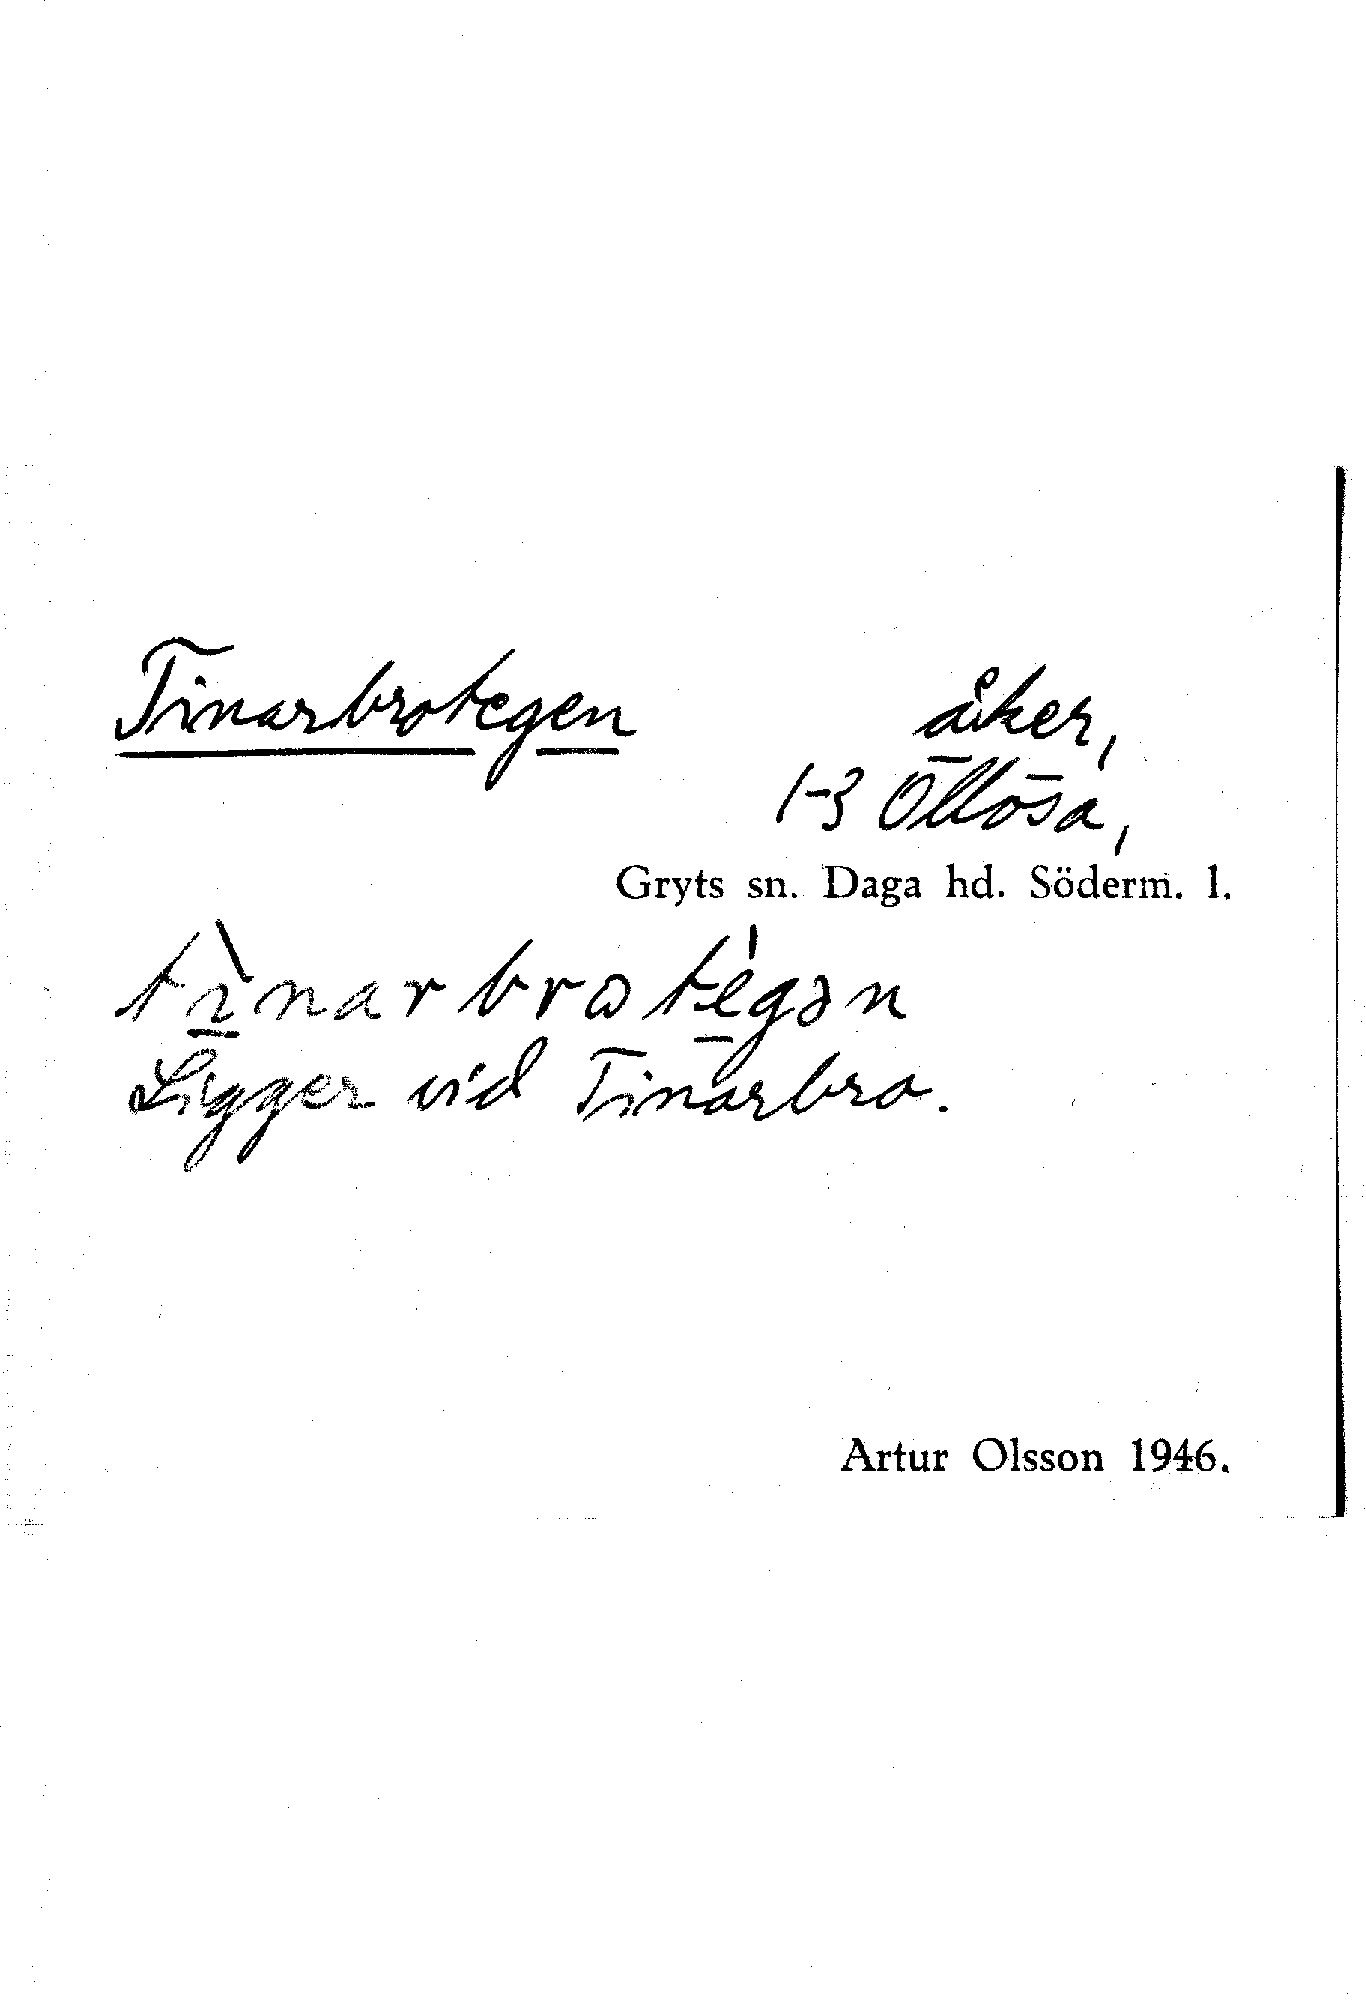 Tinarbrotegen åker,
1-3 Öllösa,
Gryts sn. Daga hd. Söderm. l.
tı̀narbrωtégən
Ligger vid Tinarbro.
Artur Olsson 1946.